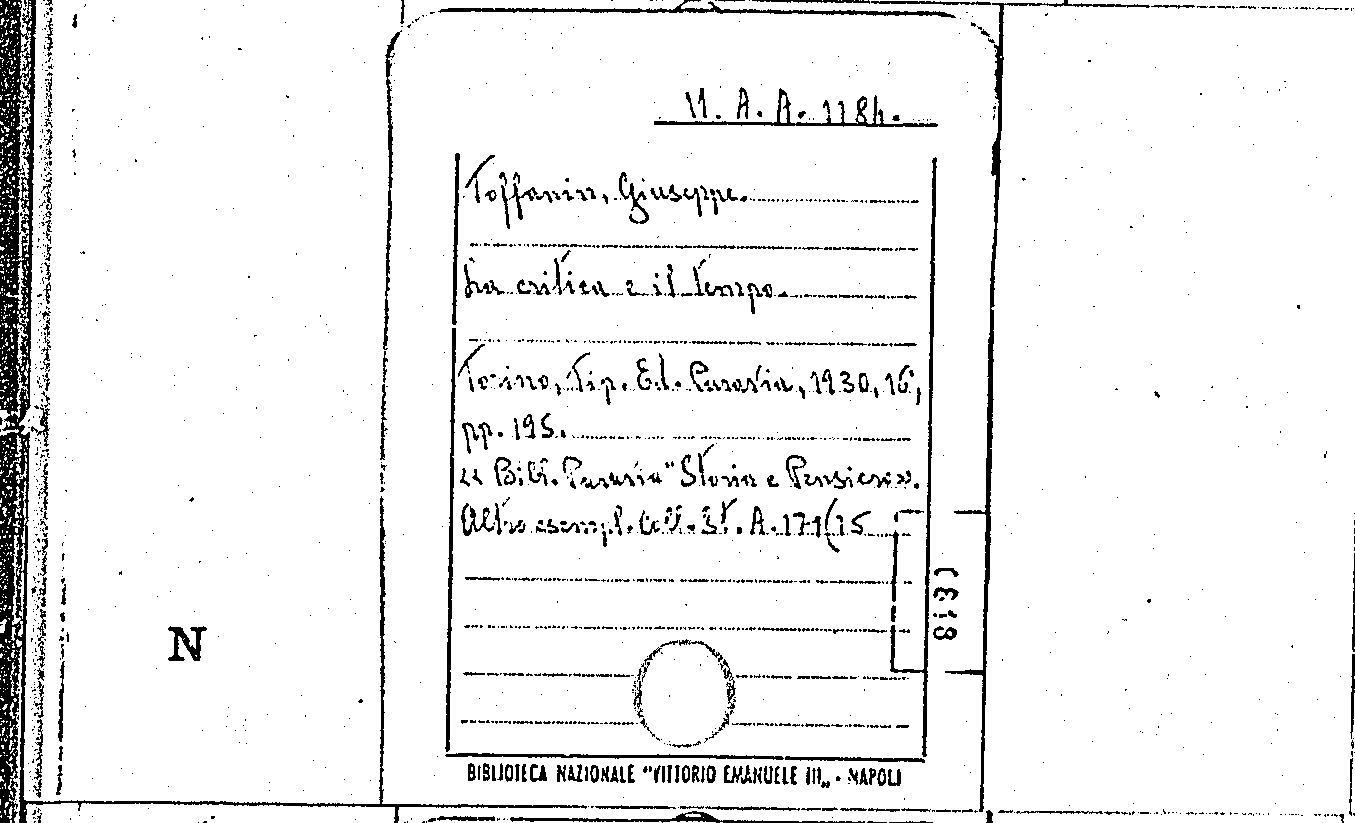 A. A. 1184.
Toffanin, Giuseppe.
La critica e il tempo.
Torino, Tip. Ed. Paravia, 1930, 16°,
pp. 195.
« Bibl. Paravia "Storia e Pensiero».
Altro esempl. Coll. St. A. 171(15
N
BIBLIOTECA NAZIONALE "VITTORIO EMANUELE III„ - NAPOLI